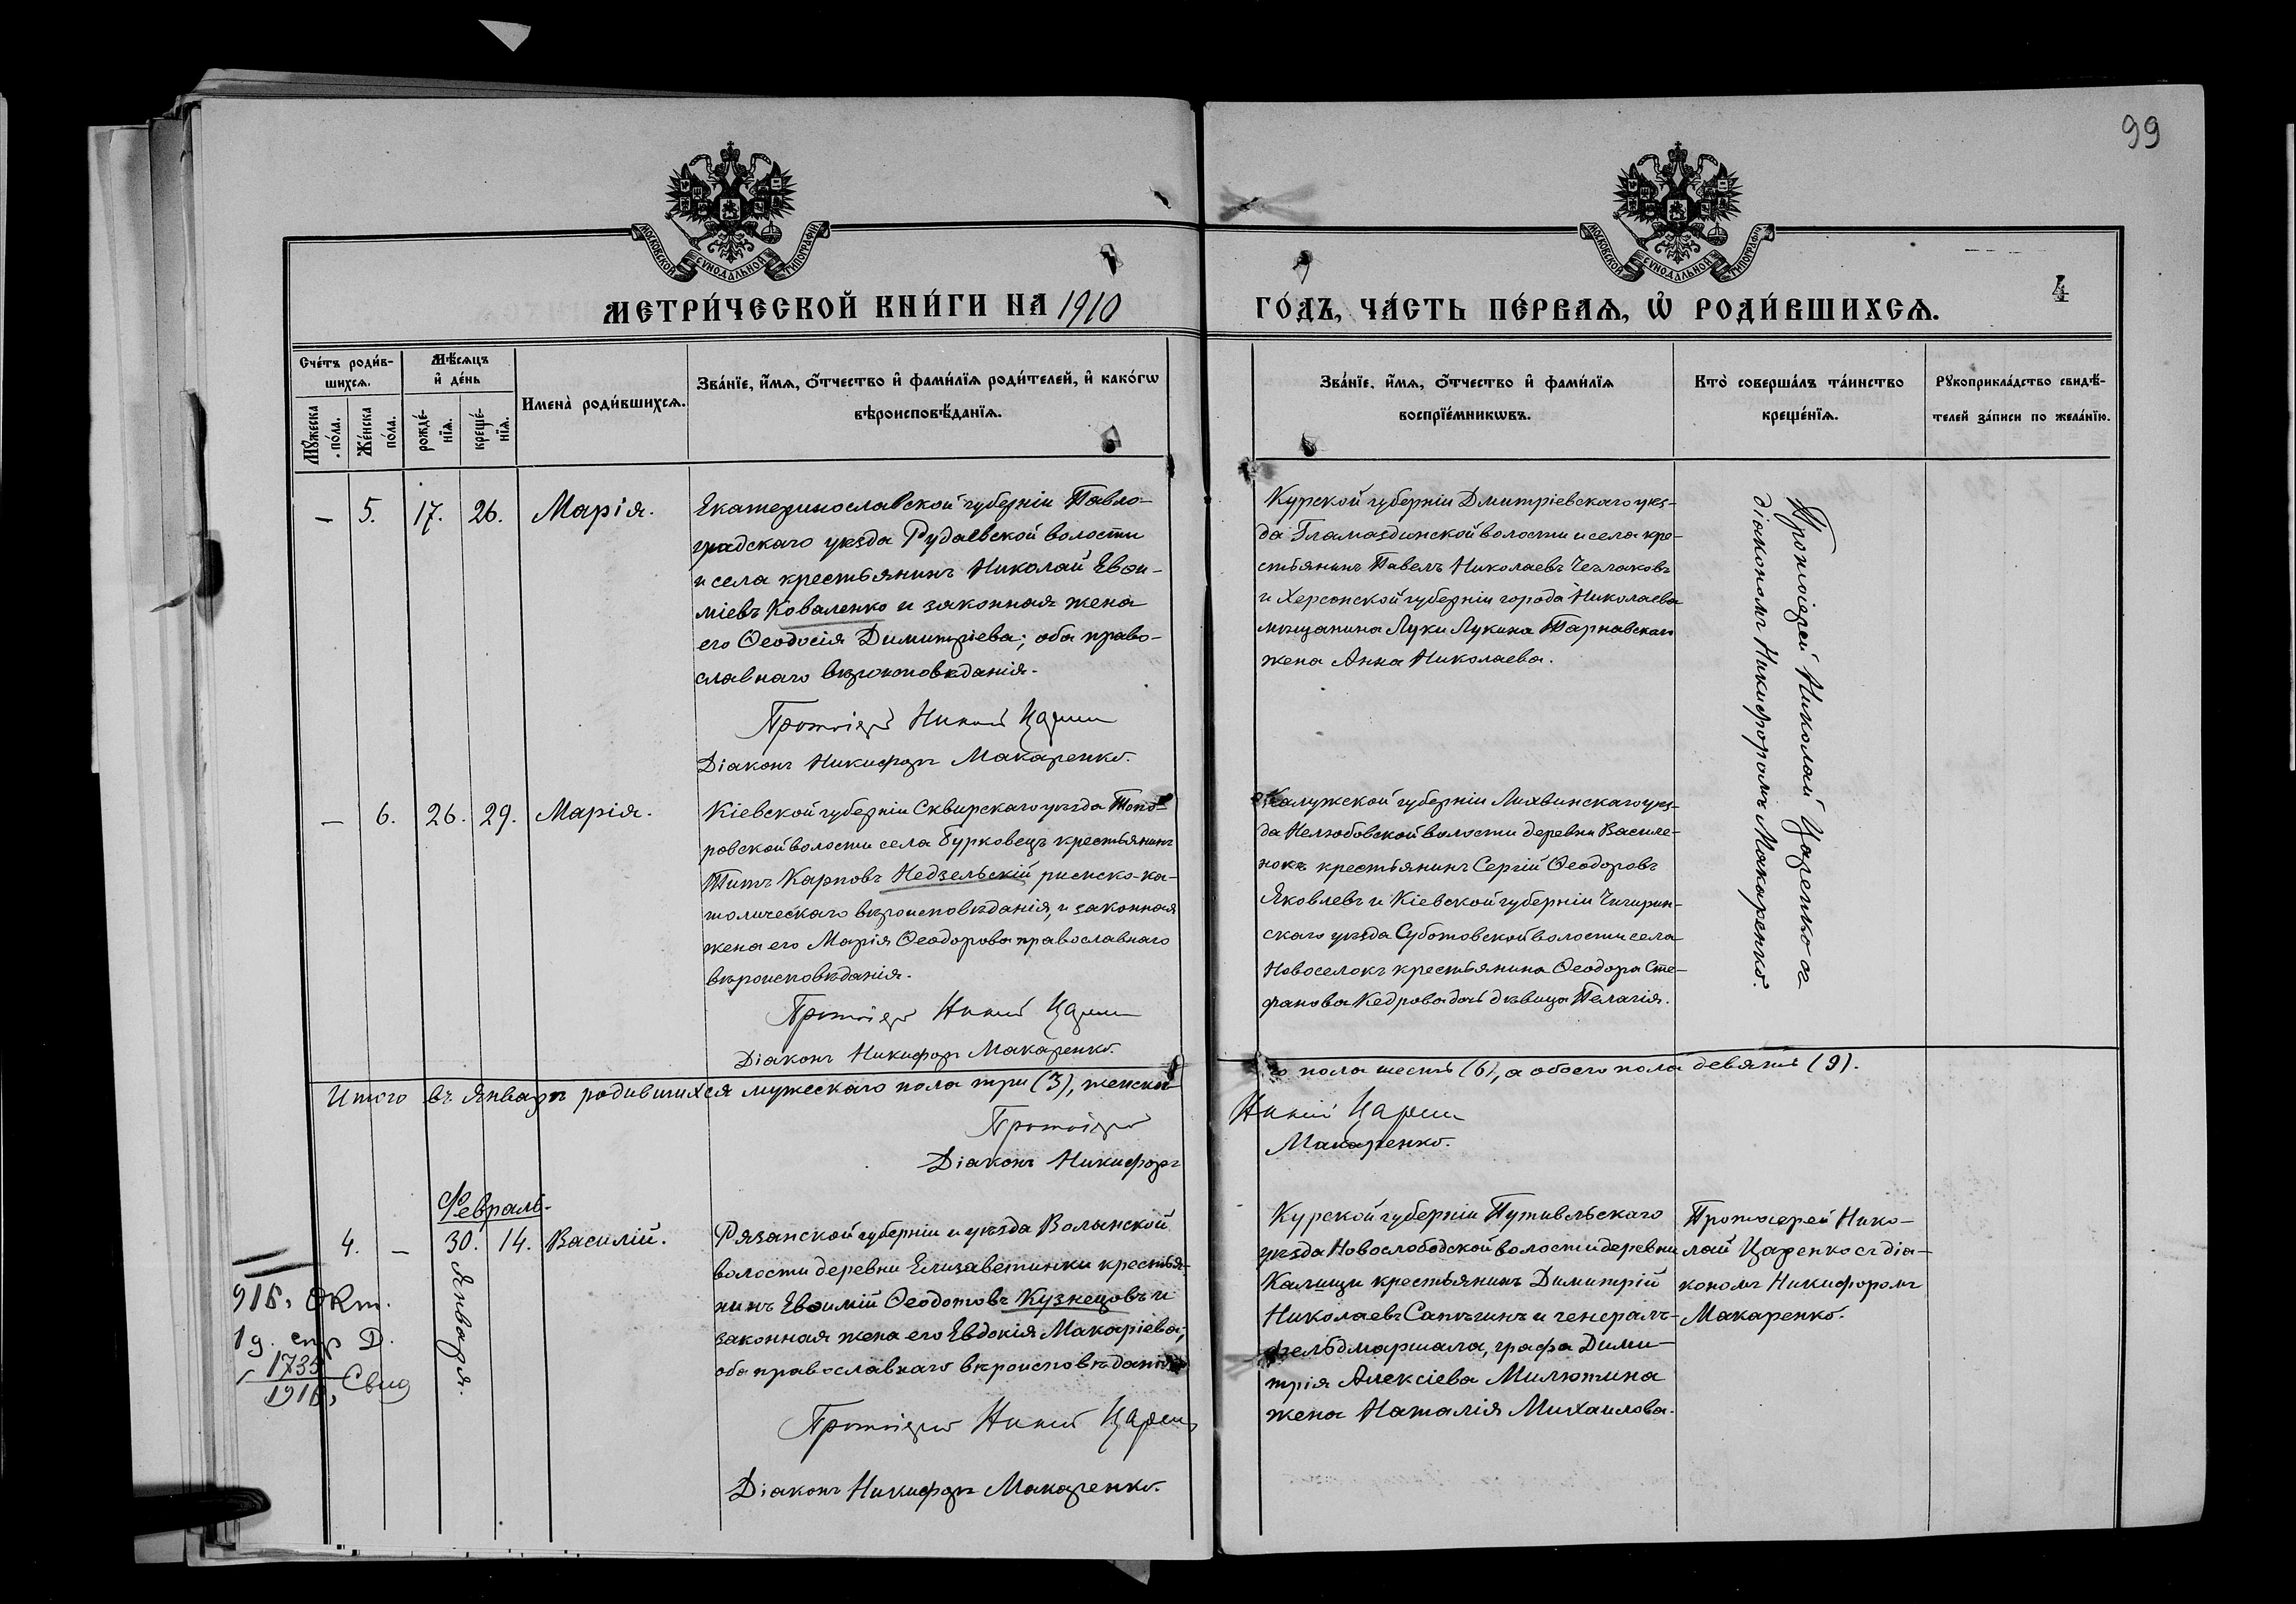 99
МОСКОВСКОЙ СѴНОДАЛЬНОЙ ТИПОГРАФІИ
МОСКОВСКОЙ СѴНОДАЛЬНОЙ ТИПОГРАФІИ
МЕТРИ́ЧЕСКОЙ КНИ́ГИ НА 1910
ГО́ДЪ, ЧА́СТЬ ПЕ́РВАѦ, Ѡ҆ РОДИ́ВШИХСѦ.
4
Сче́тъ роди́в-
шихсѧ.
Мѣ́сѧцъ
и҆ де́нь
Мꙋ́жеска
по́ла.
Же́нска
по́ла.
рожде́-
нїѧ.
креще́-
нїѧ.
Имена̀ роди́вшихсѧ.
Зва́нїе, и҆́мѧ, ѻ҆́тчество и҆ фами́лїѧ роди́телей, и҆ како́гѡ
вѣроисповѣ́данїѧ.
Зва́нїе, и҆́мѧ, ѻ҆́тчество и҆ фами́лїѧ
воспрїе́мникѡвъ.
Кто̀ соверша́лъ та́инство
креще́нїѧ.
Рꙋкоприкла́дство свидѣ́-
телей за́писи по жела́нїю.
— 5. 17. 26. Марія.
Екатеринославской губерніи Павло-
градскаго уѣзда Рудаевской волости
и села крестьянинъ Николай Евѳи-
міевъ Коваленко и законная жена
его Ѳеодосія Димитріева; оба право-
славнаго вѣроисповѣданія.
Протоіерей Николай Царенко
Діаконъ Никифоръ Макаренко.
Курской губерніи Дмитріевскаго уѣз-
да Гламаздинской волости и села кре-
стьянинъ Павелъ Николаевъ
и Херсонской губерніи города Николаева
мѣщанина Луки Лукина Тарнавскаго
жена Анна Николаева.
Протоіерей Николай Царенко съ
діакономъ Никифоромъ Макаренко.
— 6. 26. 29. Марія.
Кіевской губерніи Сквирскаго уѣзда Топо-
ровской волости села Бурковецъ крестьянинъ
Титъ Карповъ Недзельскій римско-ка-
толическаго вѣроисповѣданія, и законная
жена его Марія Ѳеодорова православнаго
вѣроисповѣданія.
Протоіерей Николай Царенко
Діаконъ Никифоръ Макаренко.
Калужской губерніи Лихвинскаго уѣз-
да Нелюбовской волости деревни Василе-
нокъ крестьянинъ Сергій Ѳеодоровъ
Яковлевъ и Кіевской губерніи Чигирин-
скаго уѣзда Суботовской волости села
Новоселокъ крестьянина Ѳеодора Сте-
фанова Кедрова дочь дѣвица Пелагія.
Итого въ Январѣ родившихся мужескаго пола три (3), женска-
го пола шесть (6), а обоего пола девять (9).
Протоіерей Николай Царенко
Діаконъ Никифоръ Макаренко.
Февраль.
4. — 30. 14. Василій.
Января.
Рязанской губерніи и уѣзда Волынской
волости деревни Елизаветинки крестья-
нинъ Евѳимій Ѳеодотовъ Кузнецовъ и
законная жена его Евдокія Макаріева;
оба православнаго вѣроисповѣданія
Протоіерей Николай Царенко
Діаконъ Никифоръ Макаренко.
Курской губерніи Путивльскаго
уѣзда Новослободской волости деревни
Калищи крестьянинъ Димитрій
Николаевъ Сапычинъ и генералъ-
фельдмаршала, графа Дими-
трія Алексіева Милютина
жена Наталія Михаилова.
Протоіерей Нико-
лай Царенко съ діа-
кономъ Никифоромъ
Макаренко.
916, Окт.
19. стр Д.
1735
1916, Свид